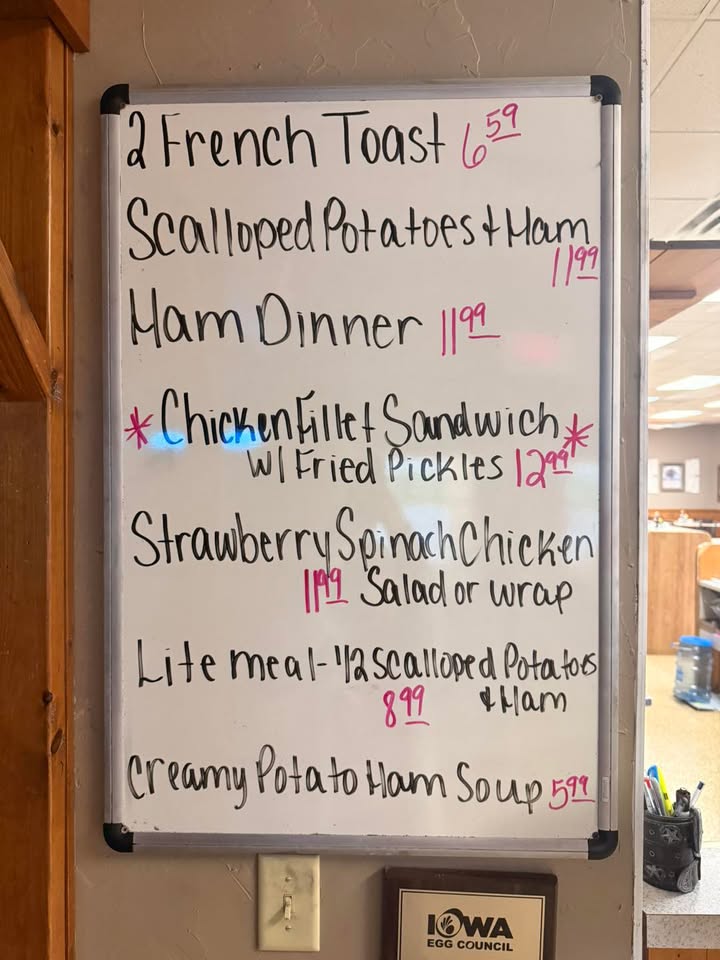 2 French Toast 6 59
Scalloped Potatoes & Ham
11 99
Ham Dinner 11 99
* Chicken Fillet Sandwich *
w/ Fried Pickles 12 99
Strawberry Spinach Chicken
11 99 Salad or wrap
Lite meal - 1/2 Scalloped Potatoes
8 99 & Ham
Creamy Potato Ham Soup 5 99
IOWA
EGG COUNCIL